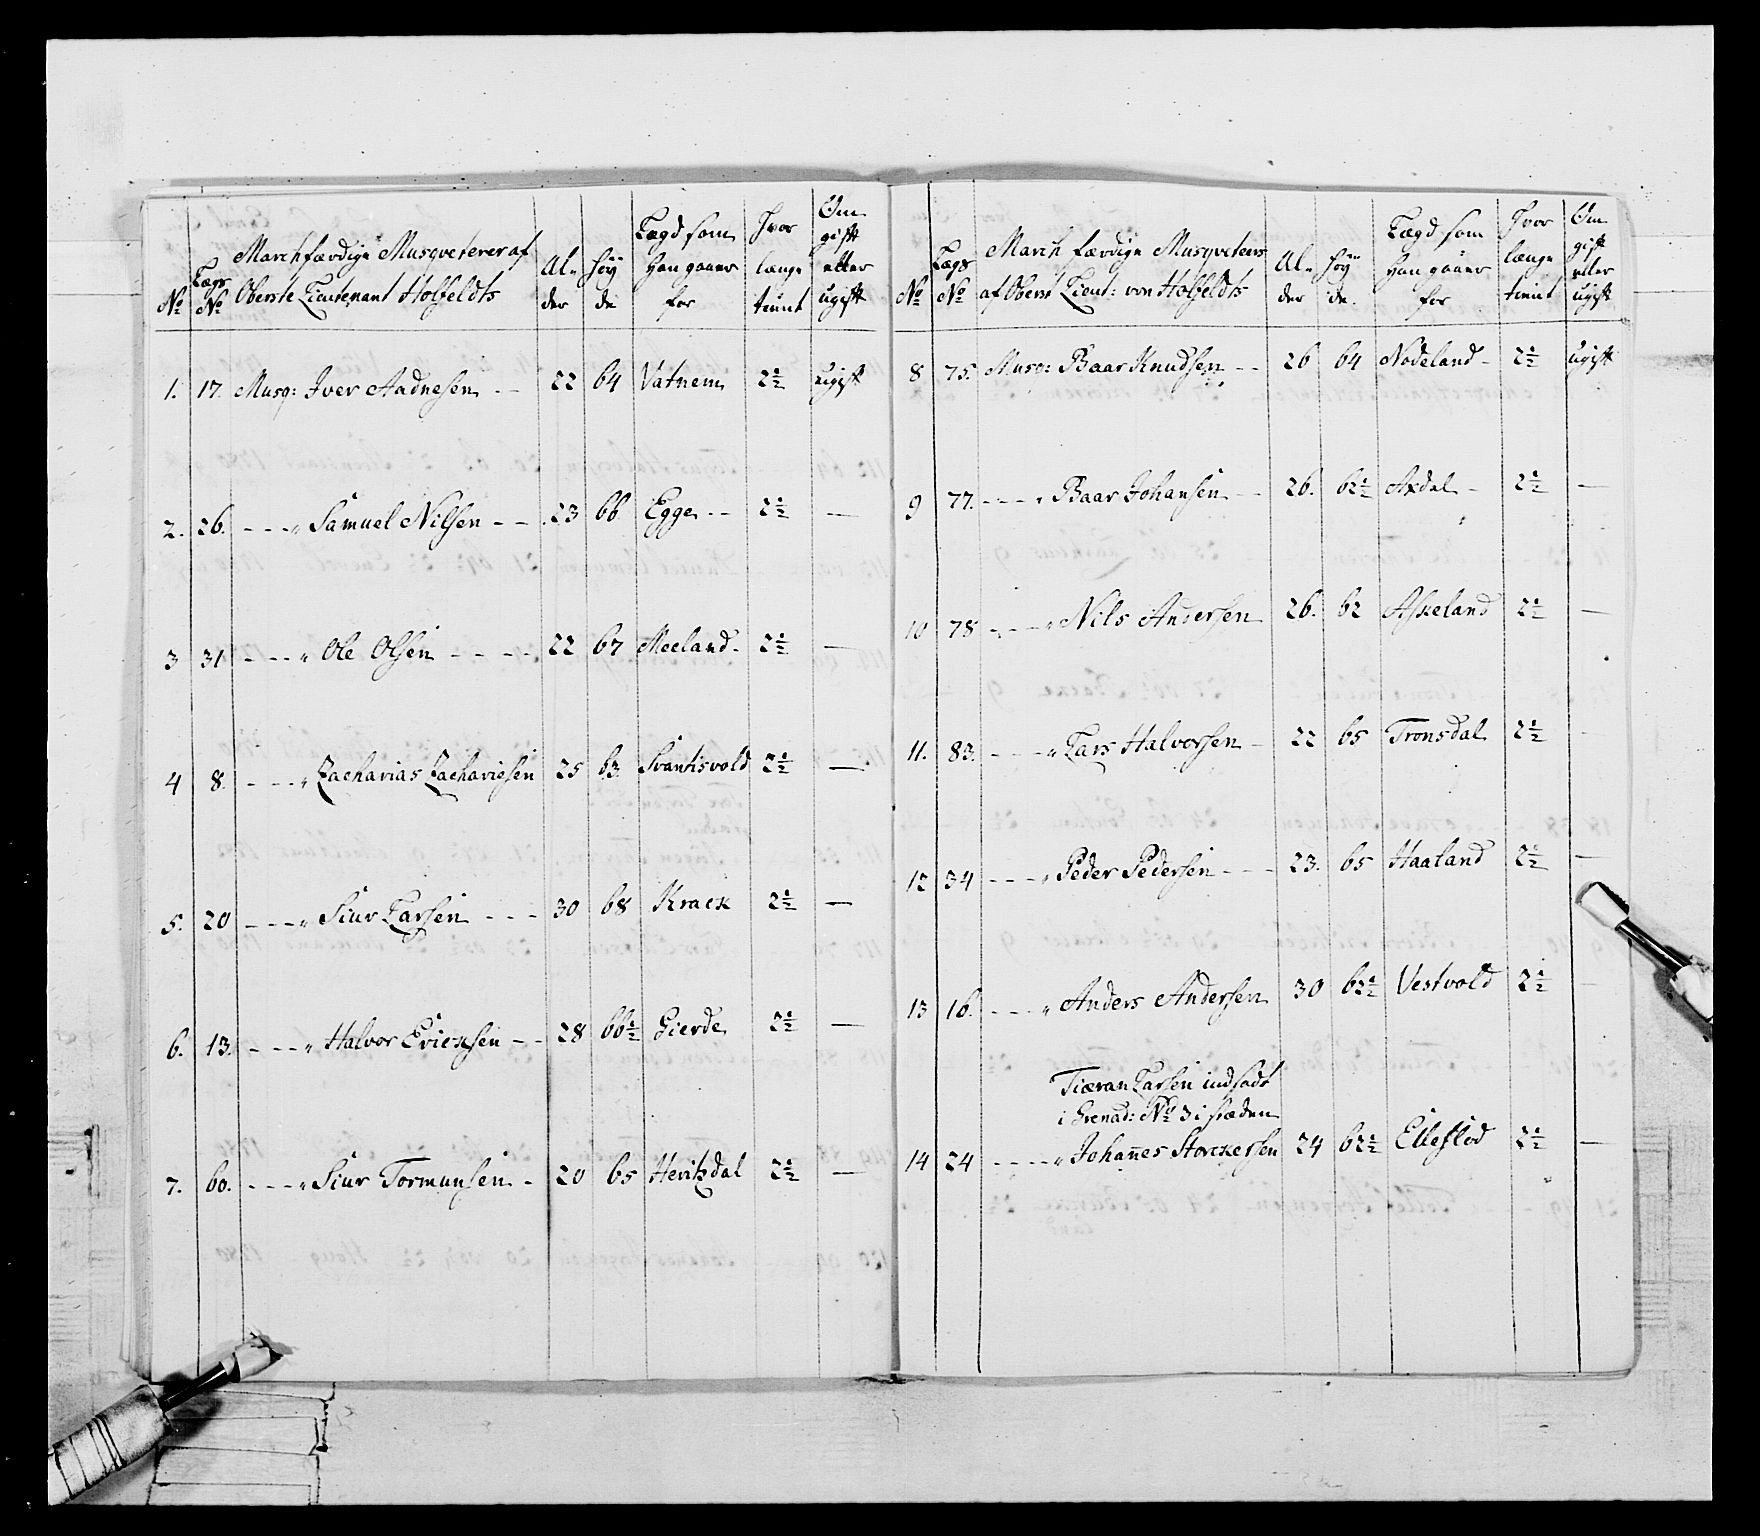 No | Lægs No | Marchfærdige Musqveterer af Oberste Lieutenant Holfeldts | Al- der | Höy de | Lægd som Han gaaer for | Hvor længe tient | Om gift eller ugift
1. | 17. | Musq: Iver Aadnesen | 22 | 64 | Vatnem | 2½ | ugift
2. | 26. | - - - " Samuel Nilsen | 23 | 66 | Egge | 2½ | —
3 | 31 | - - - " Ole Olsen | 22 | 67 | Meeland | 2½ | —
4 | 8. | - - - " Zacharias Zachariesen | 25 | 63. | Svantisvold | 2½ | —
5. | 20 | - - - " Siur Larsen | 30 | 68 | Krack | 2½ | —
6. | 13. | - - - " Halvor Ericksen | 28 | 66½ | Gierde | 2½ | —
7. | 60. | - - - " Siur Tormunsen | 20 | 65 | Heritzdal | 2½ | —
No | Lægs No | March færdige Musqveteers af Oberst Lieut: von Holfeldts | Al- der | Höy de. | Lægd som Han gaaer for | Hvor længe tient | Om gift eller ugift
8 | 75. | Musq: Baar Knudsen | 26 | 64 | Nodeland | 2½ | ugift
9 | 77. | - - - " Baar Johansen | 26. | 62½ | Axdal | 2½ | —
10 | 78 | - - - " Nils Andersen | 26. | 62 | Askeland | 2½ | —
11. | 83. | - - - " Lars Halvorsen | 22 | 65 | Tronsdal | 2½ | -
12 | 34 | - - - " Peder Pedersen | 23. | 65 | Haaland | 2½ | —
13 | 16. | - - - " Anders Andersen | 30 | 62½ | Vestvold | 2½ | -
Tiæran Larsen indsadt
i Grenad: No 3 i stæden
14 | 24 | - - - " Johannes Storckersen | 24 | 62½ | Elleflod | 2½ | —